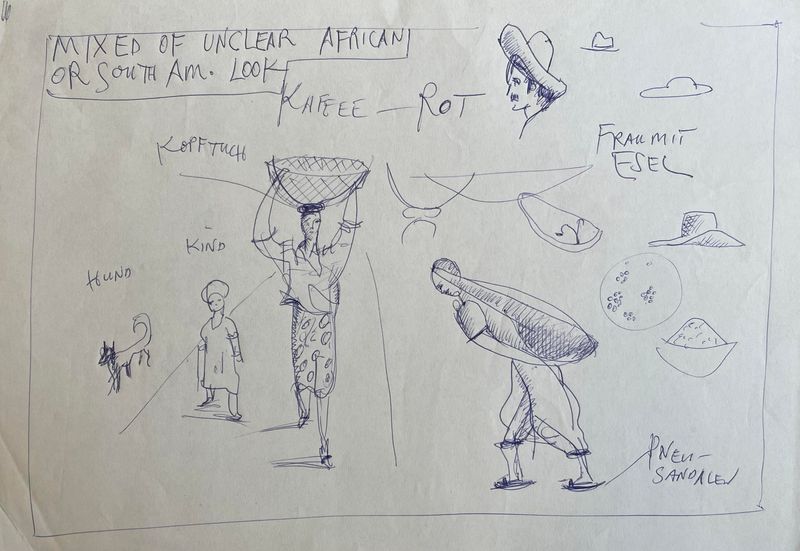 MIXED OF UNCLEAR AFRICAN
OR SOUTH AM. LOOK
KAFFEE — ROT
KOPFTUCH
FRAU MIT
ESEL
KIND
HUND
PNEU-
SANDALEN